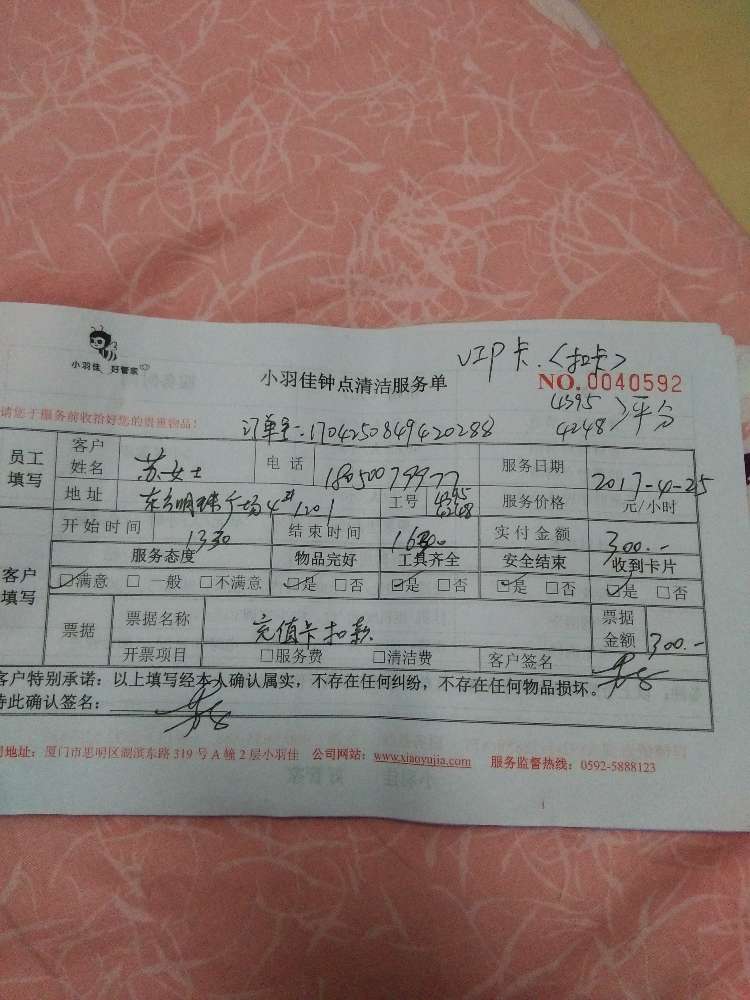 VIP卡.<扣卡>
小羽佳 好管家
小羽佳钟点清洁服务单
NO.0040592
请您于服务前收拾好您的贵重物品:
订单号:1704250849420288
4395
4248 >平分
员工填写 客户姓名 苏女士 电话 18050079977 服务日期 2017-4-25
地址 东方明珠广场4#1201 工号 4395 4248 服务价格 元/小时
客户填写 开始时间 1330 结束时间 1630 实付金额 300.-
服务态度 物品完好 工具齐全 安全结束 收到卡片
☑满意 □一般 □不满意 ☑是 □否 ☑是 □否 ☑是 □否 ☑是 □否
票据 票据名称 充值卡扣款 票据金额 300.-
开票项目 □服务费 □清洁费 客户签名
客户特别承诺:以上填写经本人确认属实,不存在任何纠纷,不存在任何物品损坏。
特此确认签名:
司地址:厦门市思明区湖滨东路319号A幢2层小羽佳 公司网站:www.xiaoyujia.com 服务监督热线:0592-5888123